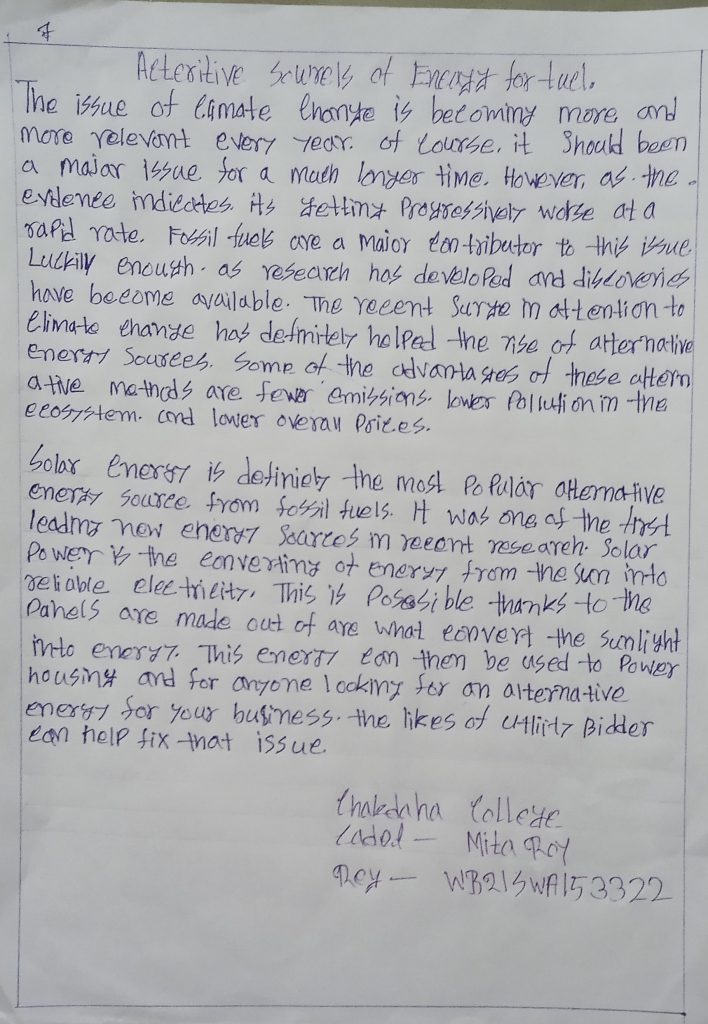 7
Alteritive Sourcels of Energy for fuel.
The issue of climate change is becoming more and
more relevant every year. of course, it should been
a major issue for a much longer time. However, as the
evidence indicates. its getting progressively worse at a
rapid rate. Fossil fuels are a major contributor to this issue
Luckily enough. as research has developed and discoveries
have become available. The recent surge in attention to
climate change has definitely helped the rise of alternative
energy sources. Some of the advantages of these altern
ative methods are fewer emissions. lower pollution in the
ecosystem. and lower overall prices.
Solar energy is definiely the most popular alternative
energy source from fossil fuels. It was one of the first
leading new energy sources in recent research. Solar
power is the converting of energy from the sun into
reliable electricity. This is possible thanks to the
panels are made out of are what convert the sunlight
into energy. This energy can then be used to power
housing and for anyone looking for an alternative
energy for your business. the likes of Utility Bidder
can help fix that issue.
Chakdaha College
Caded - Mita Roy
Reg - WB21SWA153322